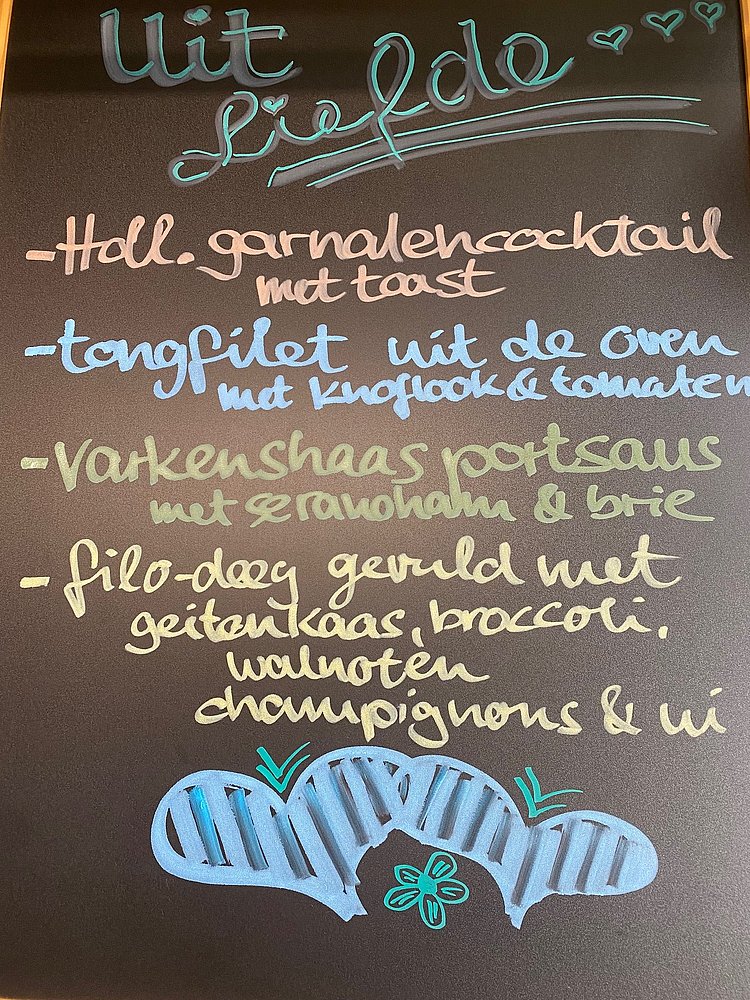 Uit
Liefde
- Holl. garnalencocktail
met toast
- tongfilet uit de oven
met knoflook & tomaten
- Varkenshaas portsaus
met serranoham & brie
- filo-deeg gevuld met
geitenkaas, broccoli,
walnoten
champignons & ui